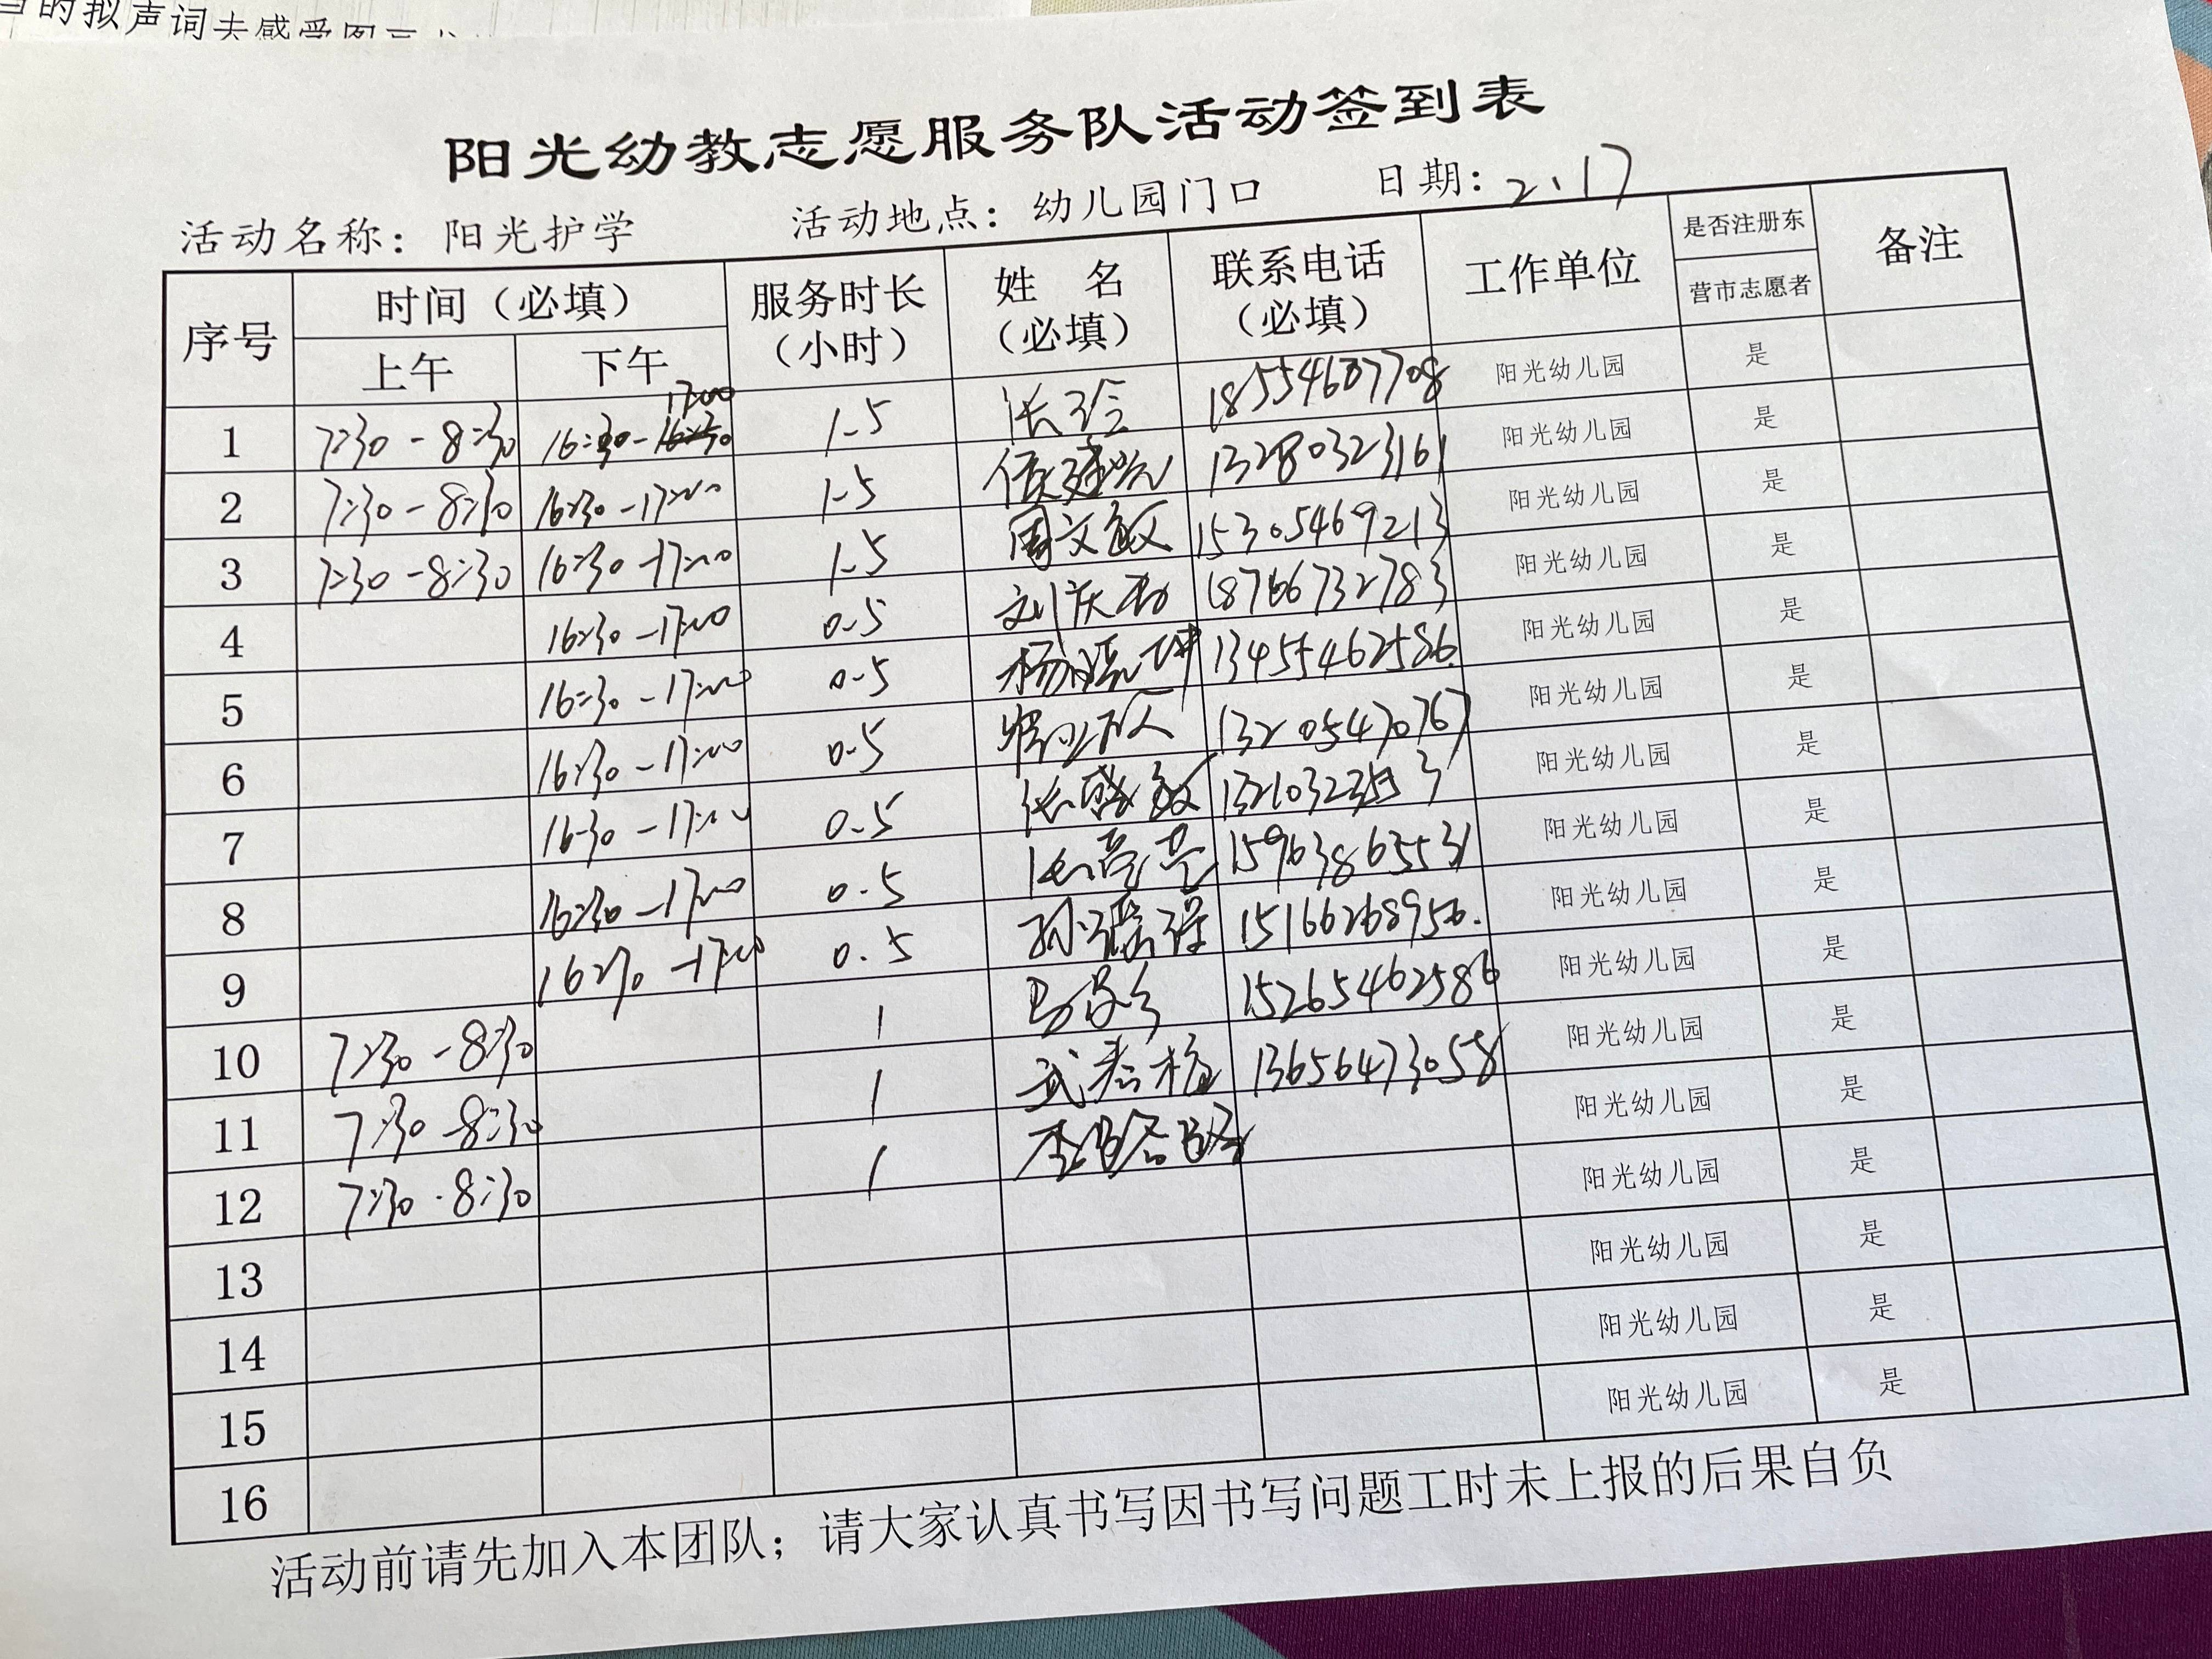 当的拟声词去感受图画
阳光幼教志愿服务队活动签到表
活动名称：阳光护学 活动地点：幼儿园门口 日期：2、17
序号 时间（必填） 服务时长（小时） 姓 名（必填） 联系电话（必填） 工作单位 是否注册东营市志愿者 备注
上午 下午
17:00
1 7:30-8:30 16:30- 1.5 张珍 18554607708 阳光幼儿园 是
2 7:30-8:30 16:30-17:00 1.5 13280323161 阳光幼儿园 是
3 7:30-8:30 16:30-17:00 1.5 周文敏 15305469213 阳光幼儿园 是
4 16:30-17:00 0.5 18766732783 阳光幼儿园 是
5 16:30-17:00 0.5 13455462586 阳光幼儿园 是
6 16:30-17:00 0.5 13205470767 阳光幼儿园 是
7 16:30-17:00 0.5 张盛敏 阳光幼儿园 是
8 16:30-17:00 0.5 15963865531 阳光幼儿园 是
9 16:30-17:00 0.5 15166268956. 阳光幼儿园 是
10 7:30-8:30 1 15265462586 阳光幼儿园 是
11 7:30-8:30 1 13656473058 阳光幼儿园 是
12 7:30-8:30 1 阳光幼儿园 是
13 阳光幼儿园 是
14 阳光幼儿园 是
15 阳光幼儿园 是
16 阳光幼儿园 是
活动前请先加入本团队；请大家认真书写因书写问题工时未上报的后果自负